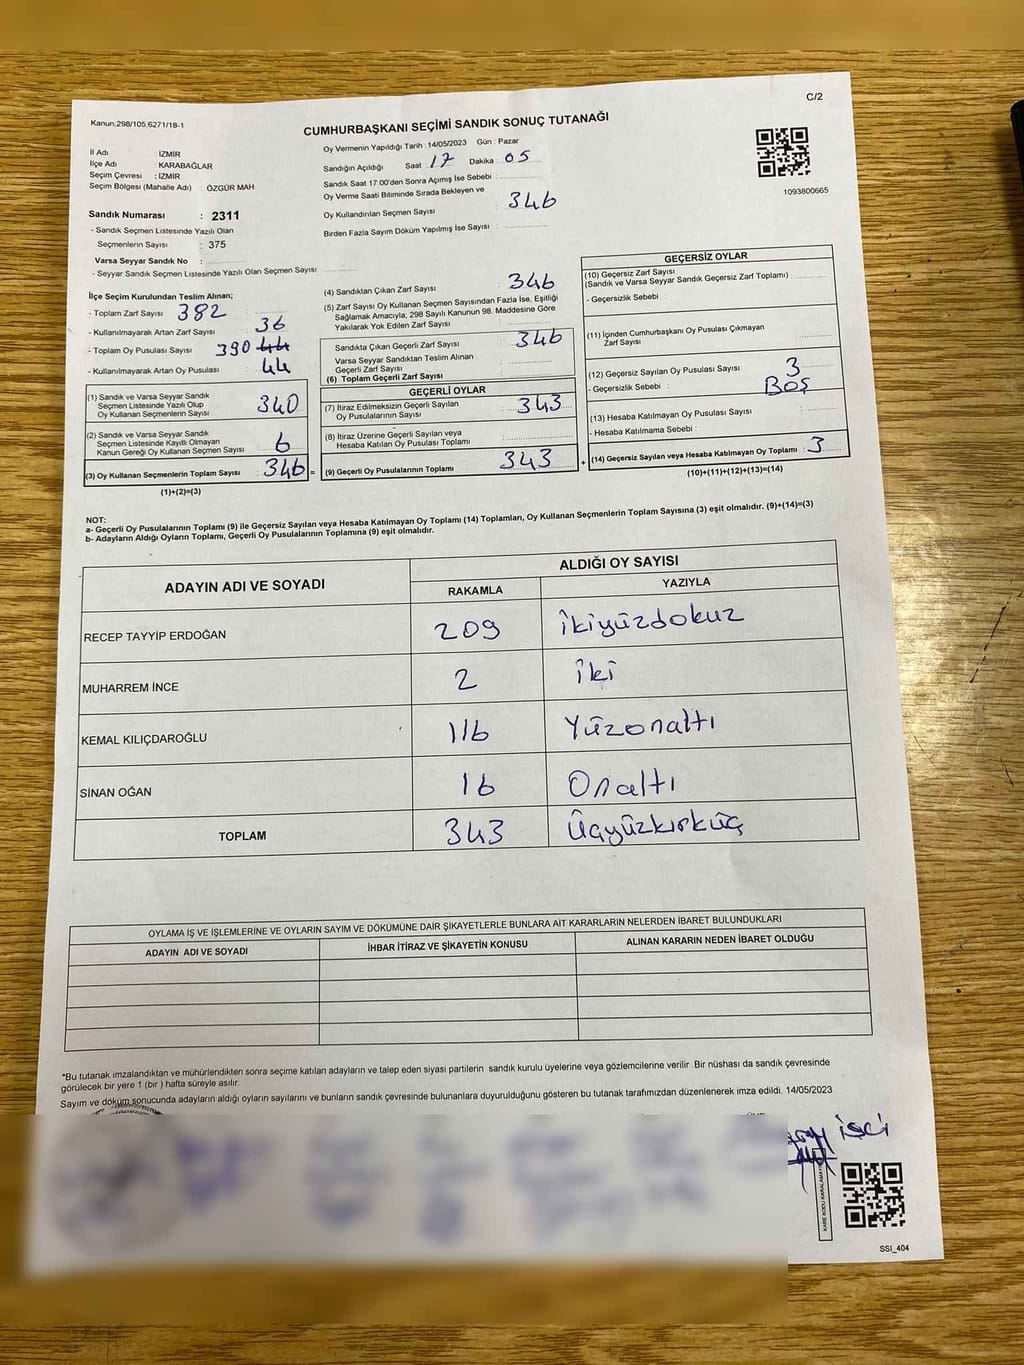 C/2
Kanun:298/105,6271/18-1
CUMHURBAŞKANI SEÇİMİ SANDIK SONUÇ TUTANAĞI
İl Adı İZMİR
İlçe Adı KARABAĞLAR
Seçim Çevresi : İZMİR
Seçim Bölgesi (Mahalle Adı) : ÖZGÜR MAH
Sandık Numarası : 2311
- Sandık Seçmen Listesinde Yazılı Olan
Seçmenlerin Sayısı : 375
Varsa Seyyar Sandık No :
- Seyyar Sandık Seçmen Listesinde Yazılı Olan Seçmen Sayısı:
Oy Vermenin Yapıldığı Tarih : 14/05/2023 Gün : Pazar
Sandığın Açıldığı Saat : 17 Dakika : 05
Sandık Saat 17.00'den Sonra Açımış İse Sebebi :
Oy Verme Saati Bitiminde Sırada Bekleyen ve
Oy Kullandırılan Seçmen Sayısı : 346
Birden Fazla Sayım Döküm Yapılmış İse Sayısı :
1093800665
İlçe Seçim Kurulundan Teslim Alınan;
- Toplam Zarf Sayısı : 382
- Kullanılmayarak Artan Zarf Sayısı : 36
- Toplam Oy Pusulası Sayısı : 390 44
- Kullanılmayarak Artan Oy Pusulası : 44
(1) Sandık ve Varsa Seyyar Sandık
Seçmen Listesinde Yazılı Olup
Oy Kullanan Seçmenlerin Sayısı : 340
(2) Sandık ve Varsa Seyyar Sandık
Seçmen Listesinde Kayıtlı Olmayan
Kanun Gereği Oy Kullanan Seçmen Sayısı : 6
(3) Oy Kullanan Seçmenlerin Toplam Sayısı : 346 =
(1)+(2)=(3)
(4) Sandıktan Çıkan Zarf Sayısı : 346
(5) Zarf Sayısı Oy Kullanan Seçmen Sayısından Fazla İse, Eşitliği
Sağlamak Amacıyla; 298 Sayılı Kanunun 98. Maddesine Göre
Yakılarak Yok Edilen Zarf Sayısı :
Sandıkta Çıkan Geçerli Zarf Sayısı : 346
Varsa Seyyar Sandıktan Teslim Alınan
Geçerli Zarf Sayısı :
(6) Toplam Geçerli Zarf Sayısı
GEÇERLİ OYLAR
(7) İtiraz Edilmeksizin Geçerli Sayılan
Oy Pusulalarının Sayısı : 343
(8) İtiraz Üzerine Geçerli Sayılan veya
Hesaba Katılan Oy Pusulası Toplamı :
(9) Geçerli Oy Pusulalarının Toplamı : 343 +
GEÇERSİZ OYLAR
(10) Geçersiz Zarf Sayısı
(Sandık ve Varsa Seyyar Sandık Geçersiz Zarf Toplamı) :
- Geçersizlik Sebebi :
(11) İçinden Cumhurbaşkanı Oy Pusulası Çıkmayan
Zarf Sayısı :
(12) Geçersiz Sayılan Oy Pusulası Sayısı : 3
- Geçersizlik Sebebi : BOŞ
(13) Hesaba Katılmayan Oy Pusulası Sayısı :
- Hesaba Katılmama Sebebi :
(14) Geçersiz Sayılan veya Hesaba Katılmayan Oy Toplamı : 3
(10)+(11)+(12)+(13)=(14)
NOT:
a- Geçerli Oy Pusulalarının Toplamı (9) ile Geçersiz Sayılan veya Hesaba Katılmayan Oy Toplamı (14) Toplamları, Oy Kullanan Seçmenlerin Toplam Sayısına (3) eşit olmalıdır. (9)+(14)=(3)
b- Adayların Aldığı Oyların Toplamı, Geçerli Oy Pusulalarının Toplamına (9) eşit olmalıdır.
ADAYIN ADI VE SOYADI
ALDIĞI OY SAYISI
RAKAMLA YAZIYLA
RECEP TAYYİP ERDOĞAN 209 ikiyüzdokuz
MUHARREM İNCE 2 iki
KEMAL KILIÇDAROĞLU 116 Yüzonaltı
SİNAN OĞAN 16 Onaltı
TOPLAM 343 Üçyüzkırküç
OYLAMA İŞ VE İŞLEMLERİNE VE OYLARIN SAYIM VE DÖKÜMÜNE DAİR ŞİKAYETLERLE BUNLARA AİT KARARLARIN NELERDEN İBARET BULUNDUKLARI
ADAYIN ADI VE SOYADI İHBAR İTİRAZ VE ŞİKAYETİN KONUSU ALINAN KARARIN NEDEN İBARET OLDUĞU
*Bu tutanak imzalandıktan ve mühürlendikten sonra seçime katılan adayların ve talep eden siyasi partilerin sandık kurulu üyelerine veya gözlemcilerine verilir. Bir nüshası da sandık çevresinde
görülecek bir yere 1 (bir ) hafta süreyle asılır.
Sayım ve döküm sonucunda adayların aldığı oyların sayılarını ve bunların sandık çevresinde bulunanlara duyurulduğunu gösteren bu tutanak tarafımızdan düzenlenerek imza edildi. 14/05/2023
işci
KARE KODU KARALAMAYINIZ
SSI_404